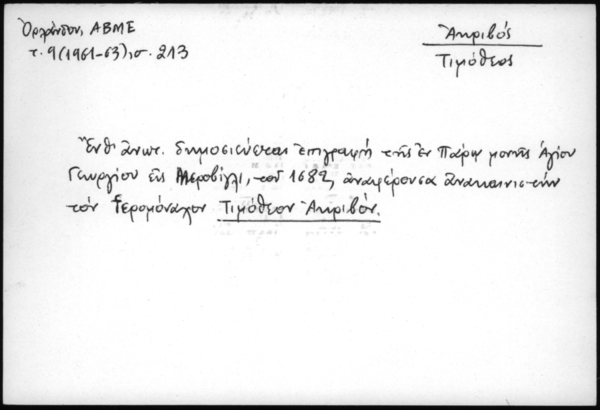 Ὀρλάνδου, ΑΒΜΕ
τ. 9 (1961-63), σ. 213
Ἀκριβός
Τιμόθεος
Ἔνθ' ἀνωτ. δημοσιεύεται ἐπιγραφή τῆς ἐν Πάρῳ μονῆς Ἁγίου
Γεωργίου εἰς Μεροβίγλι, τοῦ 1682, ἀναφέρουσα ἀνακαινιστήν
τόν Ἱερομόναχον Τιμόθεον Ἀκριβόν.